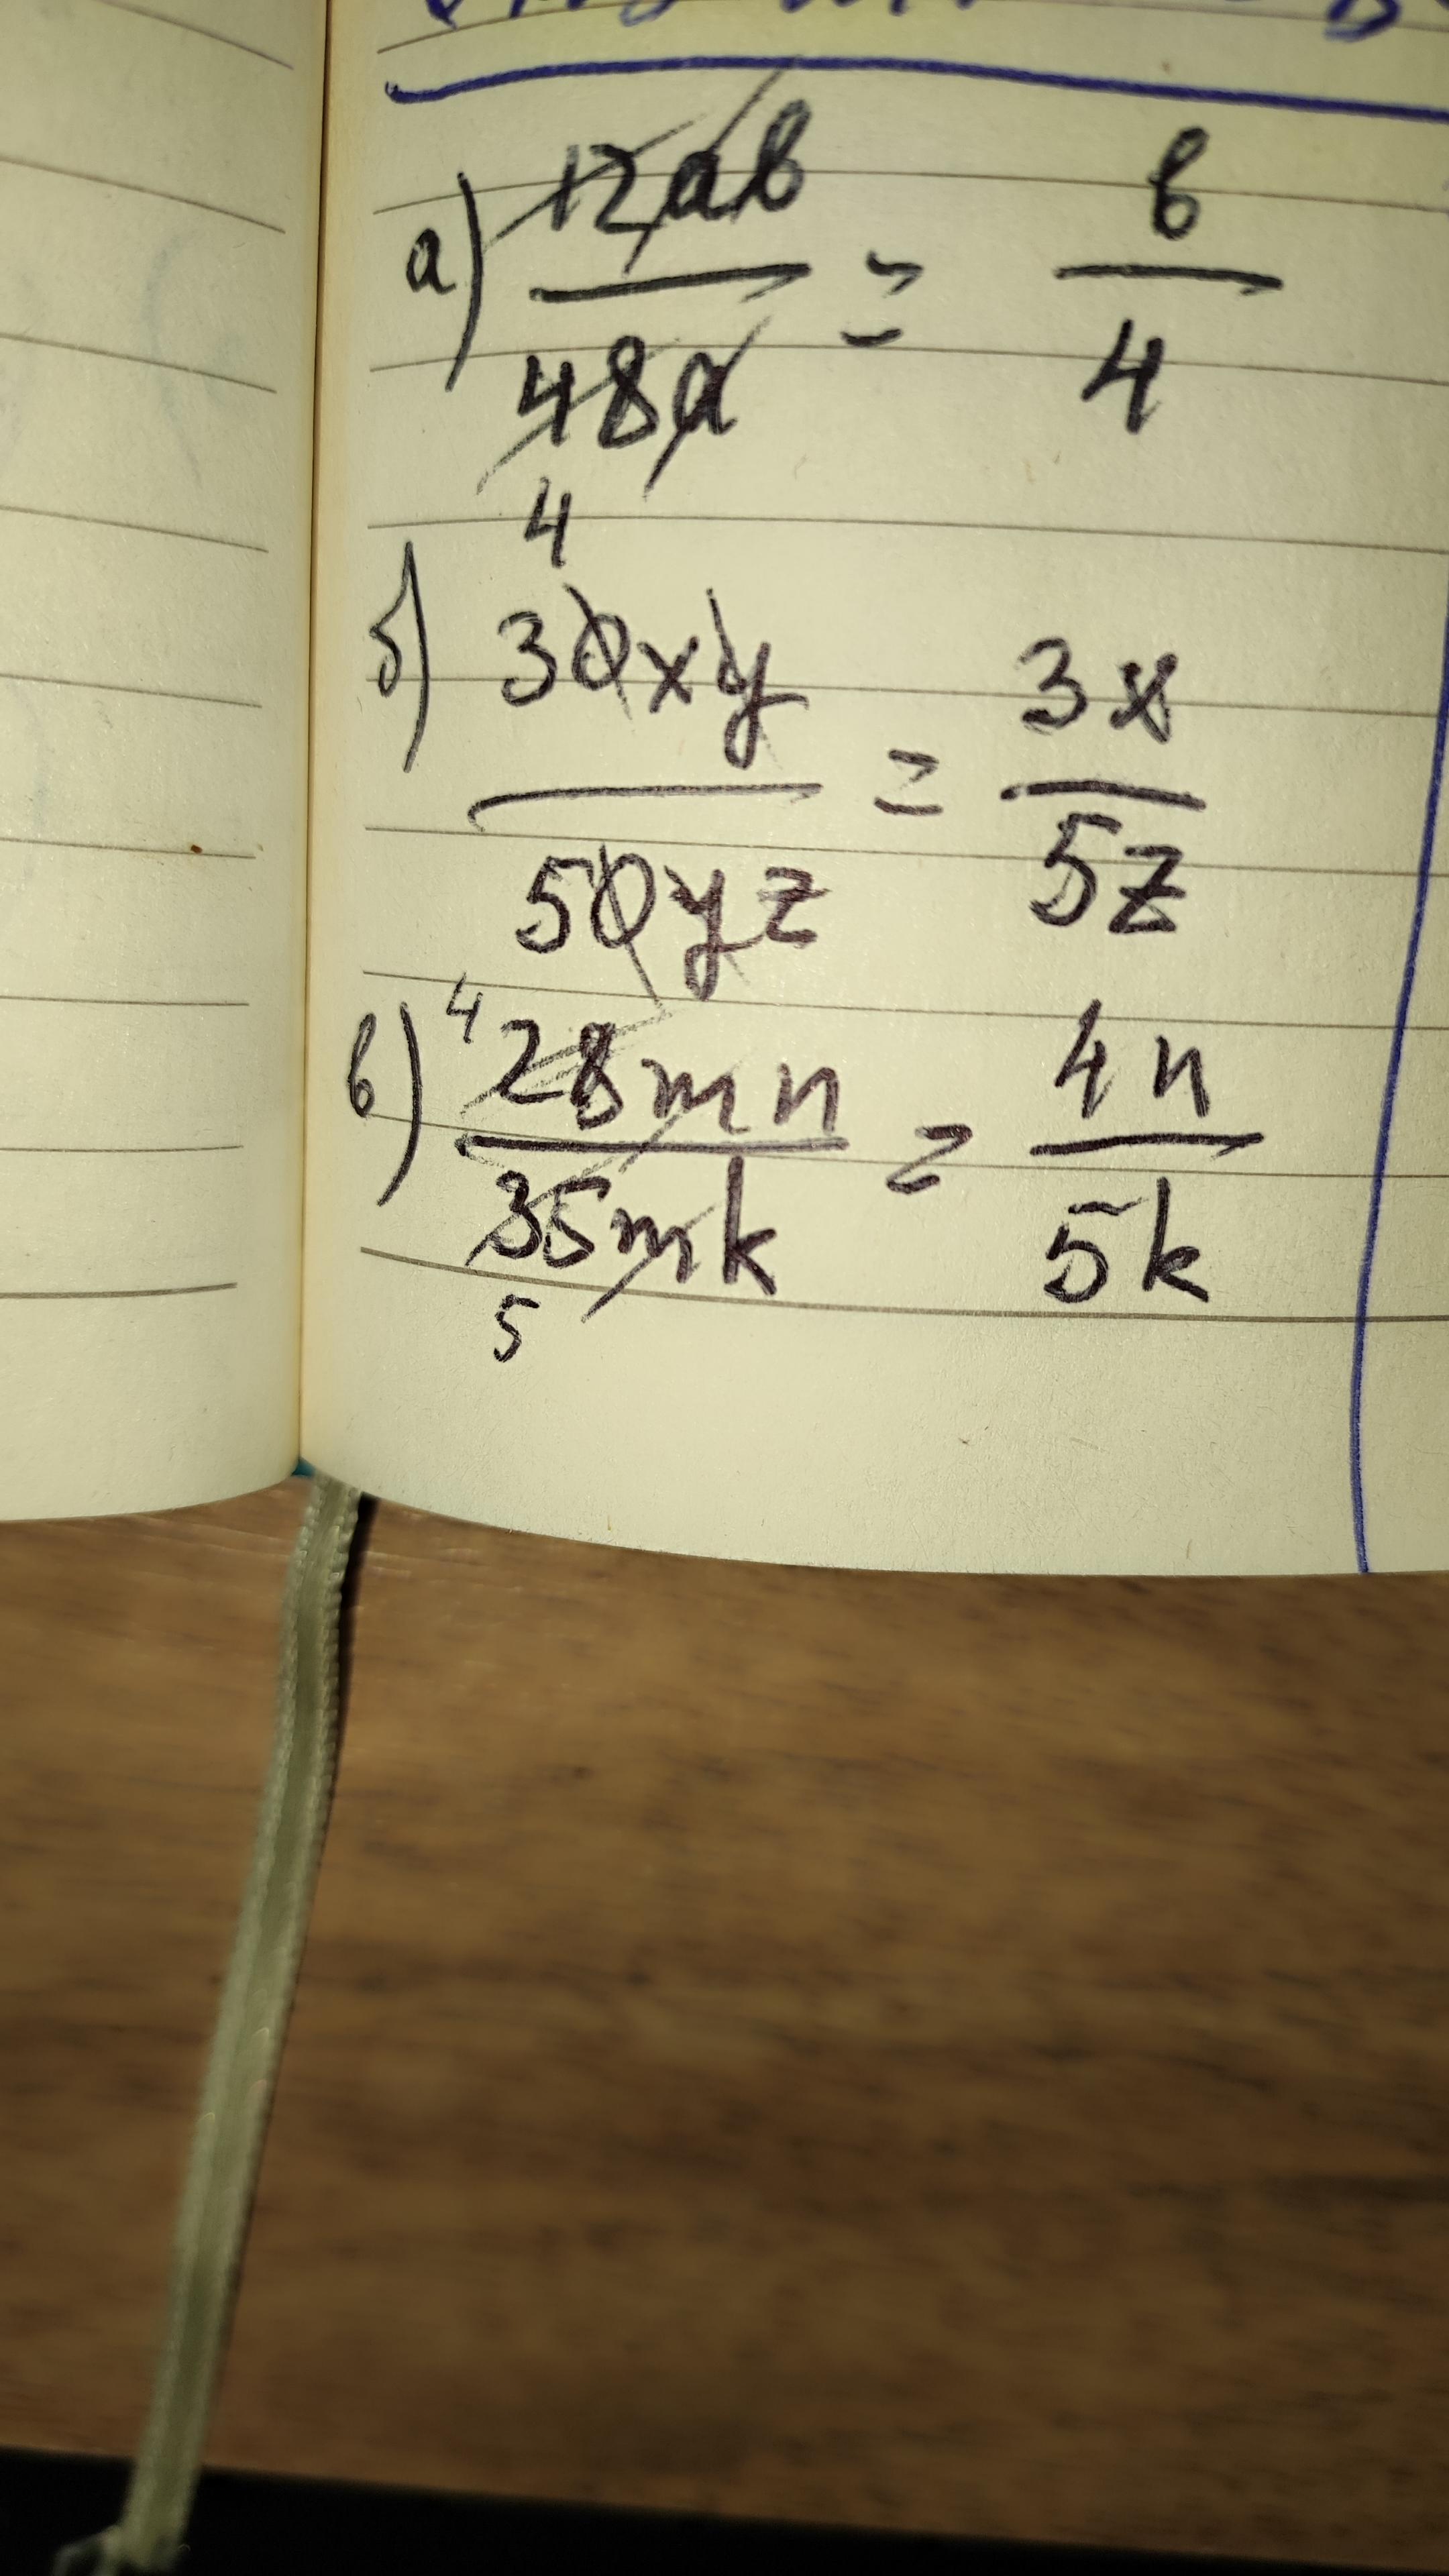 а) 12ab/48a = b/4
4
б) 30xy/50yz = 3x/5z
в) 4 28mn/35mk = 4n/5k
5